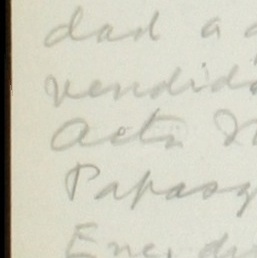 dad a
vendid
Acta
Papasq
Ene.